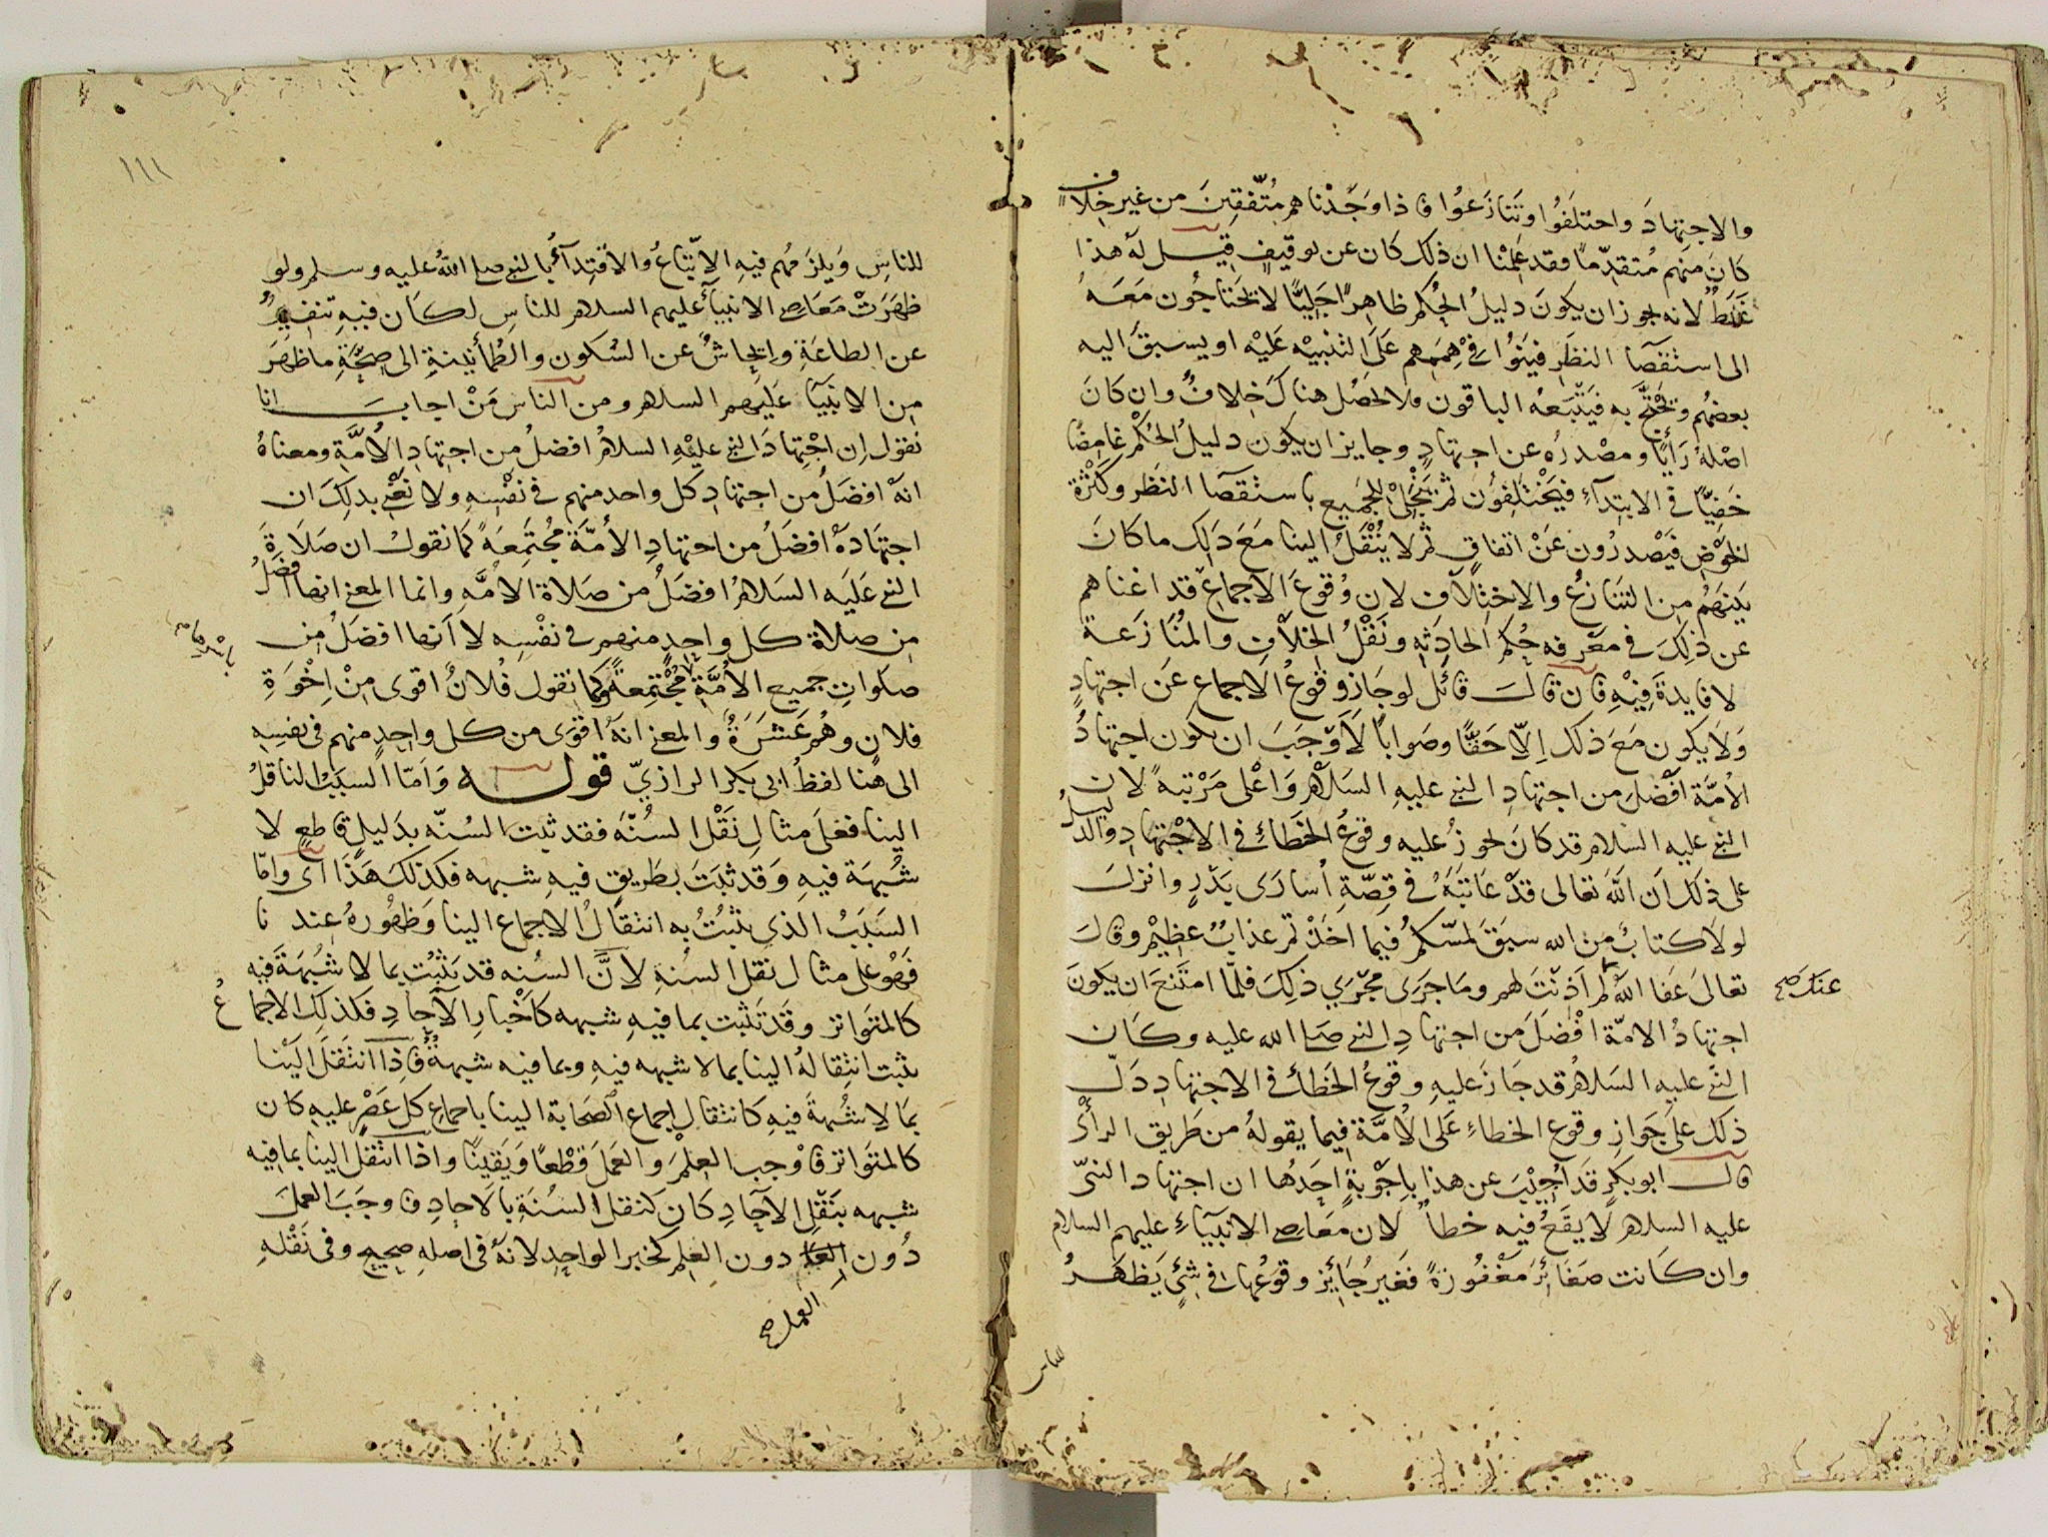 والاجتهادَ واختلَفُوا وتَنازَعُوا فاذا وَجَدْناهم مُتّفِقِينَ من غير خلاف
كانَ منهم مُتقدِّمًا فقد عَلِمْنا ان ذلك كان عن توقيفٍ قيل له هذا
غَلَطٌ لانه يجوز ان يكونَ دليلُ الحُكم ظاهرًا جَلِيًّا لا يَحتاجُون مَعَهُ
الى استقصَآ النظَرِ في هِمَمِهم عَلَى التنبيْه عَلَيْه او يسبقَ اليه
بعضهُم ويحْتجَّ به فيَتّبعُه الباقون فلا يحصُل هناكَ خِلافٌ وان كانَ
اصْلهُ رَأيًا ومصْدرُه عن اجتهادٍ وجايز ان يكون دليلُ الحُكْم غامِضًا
خَفِيًّا في الابتدآءِ فيَخْتَلِفُون ثم يتجلّى للجَميعِ باستقصَآ النظَر وكَثْرة
الخوْضِ فيَصْدرُون عَنْ اتفاقٍ ثم لا يُنْقَلُ الينا مَعَ ذَلِك ما كانَ
بَينهُم من التنازُع والاختِلَاف لان وُقوعَ الاجماع قد اغناهم
عن ذلِكَ في معْرفه حُكم الحادِثه ونَقْلُ الخِلَافِ والمُنَازَعَة
لا فايدةَ فِيْهِ فان قالَ قائل لو جَاز وقوعُ الاجماع عَن اجتهادٍ
وَلا يكون مَعَ ذلك اِلّا حَقًّا وصَوابًا لَاَوْجَبَ ان يكون اجتهادُ
الأمّة افْضَلَ من اجتهادِ النبي عليهِ السَلام وَاعْلى مَرْتبةً لان
النبي عليه السلام قد كانَ يجوزُ عليه وقوعُ الخَطَاءِ في الاجْتهادِ والدليلُ
على ذلكَ اَن اللهَ تعالى قدْ عَاتبَهُ في قِصّةِ اُسارَى بَدْرٍ وانزلَ
لولا كتابٌ منَ الله سبَقَ لمسّكم فيما اخَذْتم عذابٌ عظِيْم وقالَ
تعالىَ عَفَا اللهُ لم اَذِنْتَ لهم ومَا جرَى مَجْرَي ذلِكَ فلمّا امتَنعَ ان يكونَ
عنك صح
اجتهادُ الامّة افْضَلَ من اجتهادِ النبي صلى الله عليه وكان
النبي عليه السَلامُ قد جَازَ عليهِ وقوعُ الخَطأ في الاجتهادِ دَلّ
ذلك علىَ جَوازِ وقوع الخطاءِ عَلى الأمَّة فيما يقولهُ من طَريق الرأي
قال ابو بكرٍ قَد اُجِيْبَ عن هذا باجْوِبةٍ اَحِدُها ان اجتهاد النبيّ
عليه السلام لا يقَعُ فيه خطأ لان معَاصي الانبيَاءِ عليهم السلام
وان كانت صغَائرَ مَغْفُورَةً فغيرُ جَائزٍ وقوعُها في شئٍ يَظهَرُ
للناس
١١١
للناسِ وَيلزَمُهم فيهِ الاتّباعُ والاقتِدآءُ بالنبي صلى اللهُ عليه وسلم ولو
ظهَرَتْ مَعَاصي الانبيآءِ عليهم السلام للناسِ لكان فيهِ تنفيرٌ
عن الطاعَةِ وايحَاشٌ عن السُكون والطُمأنينةِ الى صِحَّةِ ما ظهَرَ
مِن الانبيَآ عَليَهم السلام ومن الناس مَنْ اجاب انا
نقول اِن اجْتِهادَ النبي عليْهِ السلامُ افضلُ من اجتهادِ الأمَّةِ ومعناهُ
انهُ افضَلُ من اجتهادِ كل واحد منهم في نفْسِهِ ولا نَعْني بذلِكَ ان
اجتهَادَهُ افضَلُ من اجتهادِ الأمّة مُجْتَمِعَةً كما نقولُ ان صَلَاةَ
النبي عَلَيه السَلامُ افضَلُ من صَلاة الأمَّةِ وانما المعنى انها افضلُ
من صلاة كل واحِدٍ منهم في نفْسِه لا اَنها افضَلُ مِن
صلَواتِ جميع الأمَّة مُجْتَمِعةً وكما نقول فُلانٌ اقوى مِنْ اِخْوَةِ
فلان وهُم عَشَرَةٌ والمعنى انهُ اقوَى من كل واحِدٍ منهم في نفسِهِ
الى هُنا لفظُ ابي بكر الرازيّ قوله وَاَمّا السبَبُ الناقلُ
الينا فعلى مثالِ نَقْل السُنّة فقد ثبت السُنّه بدَليلٍ قاطعٍ لا
شُبهَة فيهِ وَقد ثبَتَ بطَريقٍ فيهِ شبهه فكذلكَ هَذَا اَي وامّا
السَبَبُ الذي يثبُتُ به انتقَالُ الاجماع الينا وَظهُورهُ عِند نا
فهُو على مثال نقل السُنهِ لانَّ السُنه قد يَثْبُت بما لا شُبْهَةَ فيهِ
كالمتَواتر وقَد تَثبت بما فيهِ شبهه كاَخْبارِ الآحادِ فكَذلِكَ الاجماعُ
يثبت انتِقالهُ الينا بما لا شبهه فيهِ وبما فيه شبهةٌ فاِذا انتَقلَ الَيْنا
بمَا لا شُبهةَ فيهِ كانتقال اجماع الصَحَابة الينا باجماع كل عَصْرٍ عليهِ كان
كالمتَواتر فاوْجب العِلمَ والعَمَلَ قَطْعًا ويَقينًا واذا انتقلَ الينا بما فيه
شبهه بنَقْلِ الآحادِ كان كنقل السُنَةِ بالاحادِ فاوجَبَ العملَ
دُون دون العِلمِ كخبر الواحِدِ لانهُ في اصلهِ صحيح وفي نَقْلهِ
العمل صح